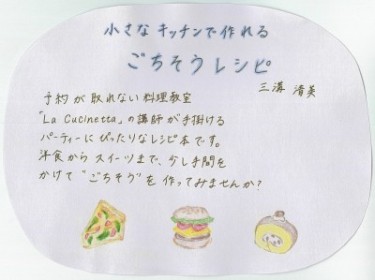 小さなキッチンで作れる
ごちそうレシピ
三溝 清美
予約が取れない料理教室
"La Cucinetta"の講師が手掛ける
パーティーにぴったりなレシピ本です。
洋食からスイーツまで、少し手間を
かけて"ごちそう"を作ってみませんか?